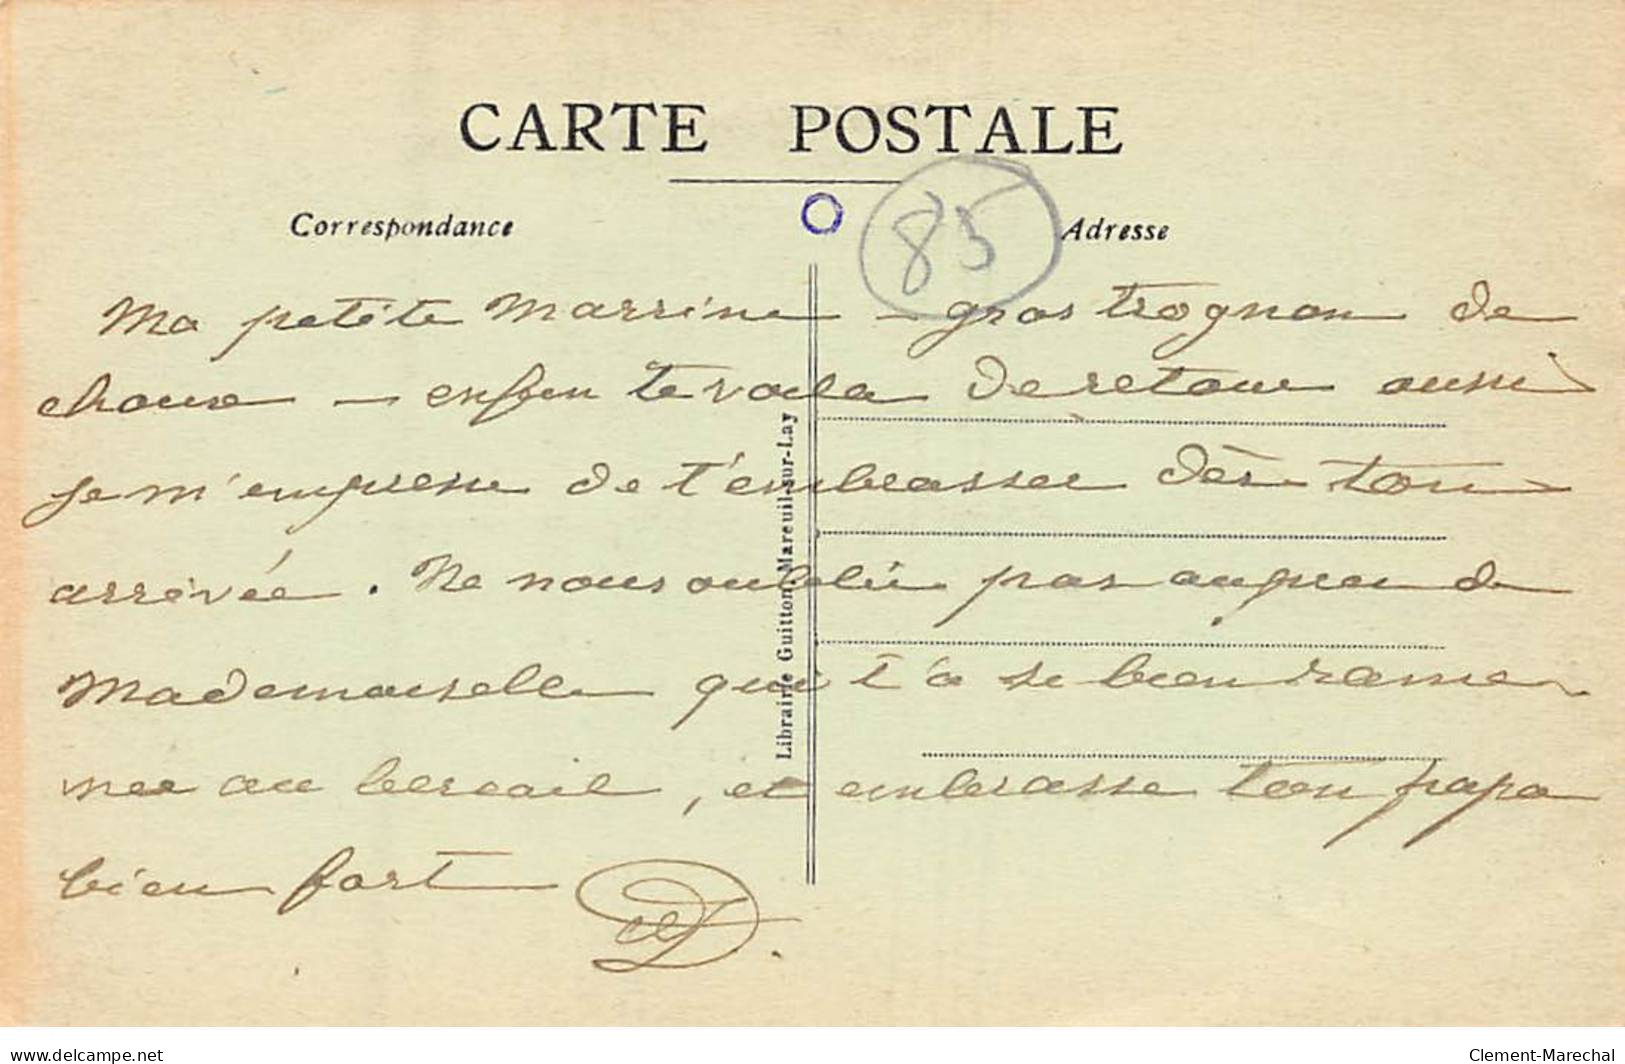 CARTE POSTALE
85
Correspondance
Adresse
Ma petite Marrine – gros trognon de
choux – enfin te voila de retour aussi
je m'empresse de t'embrasser dès ton
arrivée. Ne nous oublie pas auprès de
Mademoiselle qui t'a si bien rame
née au bercail, et embrasse ton papa
bien fort
Librairie Guitton, Mareuil-sur-Lay
delcampe.net
Clement-Marechal